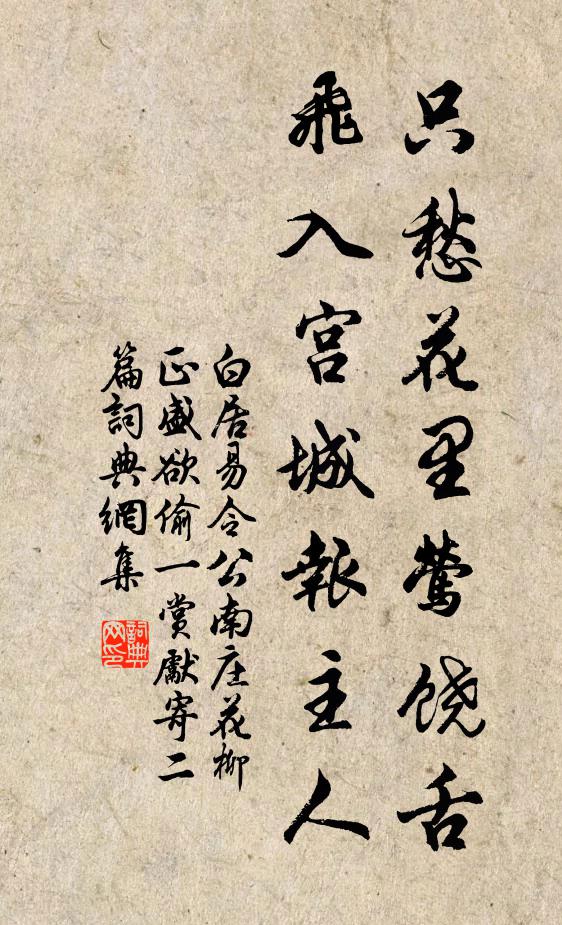 只愁花里莺饶舌
飞入宫城报主人
白居易令公南庄花柳
正盛欲偷一赏獻寄二
篇詞典網集
詞典
网印